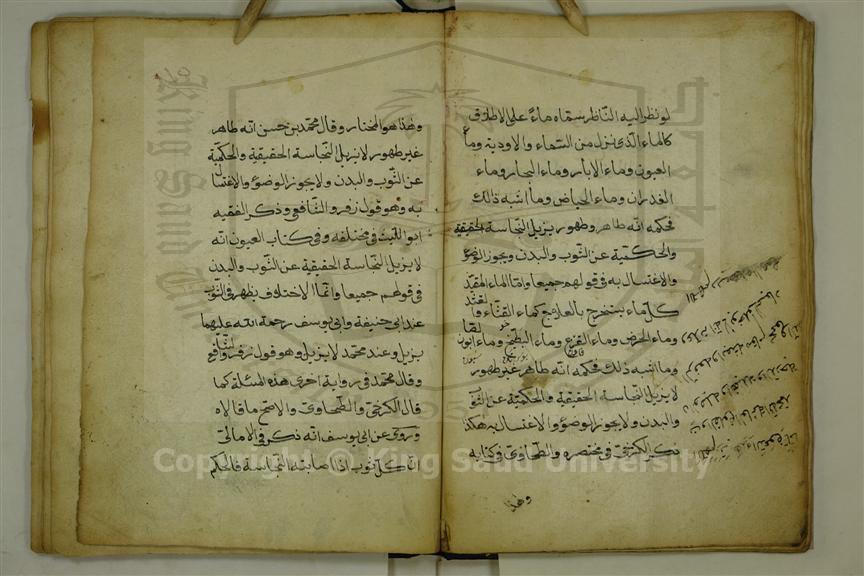 لو نظر اليه الناظر سماه ماءً على الاطلاق
كالماء الذى نزل من السماء والاودية وماء
العيون وماء الابار وماء البحار وماء
الغدران وماء الحياض وما اشبه ذالك
فحكمه انه طاهر وطهور يزيل النجاسة الحقيقية
والحكمية عن الثوب والبدن ويجوز الوضوء
والاغتسال به فى قولهم جميعا واما الماء المقيد
كل ماء يستخرج بالعلاج كماء القثاء
وماء الحرض وماء القرع وماء البطيخ وماء
وما اشبه ذلك فحكمه انه طاهر غير طهور
لا يزيل النجاسة الحقيقية والحكمية عن الثوب
والبدن ولا يجوز الوضوء والاغتسال به هكذا
ذكر الكرخى فى مختصره والطحاوى فى كتابه
وهذا
وهذا هو المختار وقال محمد بن حسن انه طاهر
غير طهور لا يزيل النجاسة الحقيقية والحكمية
عن الثوب والبدن ولا يجوز الوضوء والاغتسال
به وهو قول زفر والشافعى وذكر الفقيه
ابو الليث فى مختلفه وفى كتاب العيون انه
لا يزيل النجاسة الحقيقية عن الثوب والبدن
فى قولهم جميعا وانما الاختلاف يظهر فى الثوب
عند ابى حنيفة وابى يوسف رحمة الله عليهما
يزيل وعند محمد لا يزيل وهو قول زفر والشافعى
وقال محمد فى رواية اخرى هذه المسئلة كما
قال الكرخى والطحاوى والاصح ما قالاه
وروى عن ابى يوسف انه ذكر فى الامالى
ان كل ثوب اذا اصابته النجاسة فالحكم
Copyright © King Saud University